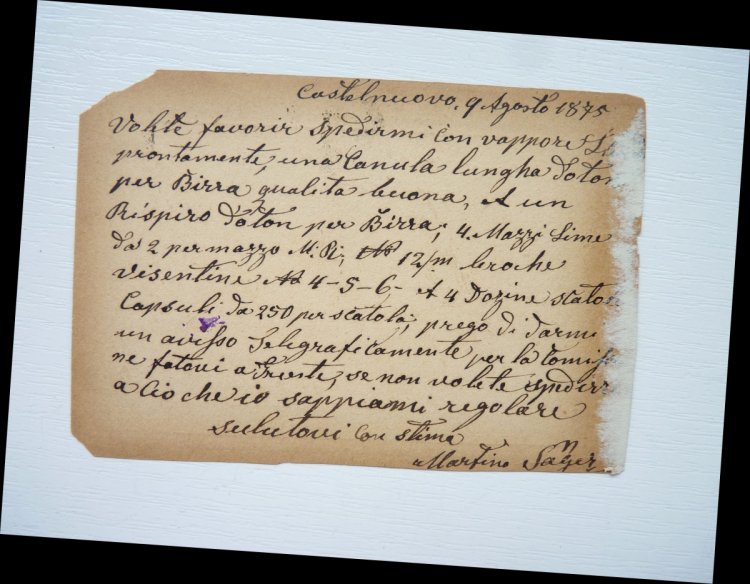 Castelnuovo, 9 Agosto 1875
Volete favorir Spedirmi Con vappore
prontamente, una Canula lungha doton
per Birra qualita buona, A un
Rispiro d'oton per Birra; 4. Mazzi Lime
da 2 per mazzo M. Pi; 12/m broche
Visentine No 4-5-6- A 4 Dozine Scatol
Capsuli da 250 per scatola; prego di darmi
un avisso Telegraficamente per la Comiss
ne fatovi a Trieste, se non volete spedirm
a Cio che io sappiami regolare
Salutovi Con stima
Martino